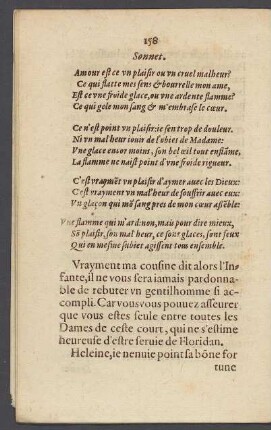 158
Sonnet.
Amour est ce vn plaisir ou vn cruel malheur?
Ce qui flatte mes sens & bourrelle mon ame,
Est ce vne froide glace, ou vne ardente flamme?
Ce qui gele mon sang & m'embrase le cœur.
Ce n'est point vn plaisir: ie sen trop de douleur.
Ni vn mal heur iouir de l'obiet de Madame:
Vne glace encor moins, son bel œil tout enflame,
La flamme ne naist point d'vne froide rigueur.
C'est vraymēt vn plaisir d'aymer auec les Dieux:
C'est vrayment vn mal'heur de souffrir auec eux:
Vn glaçon qui mō sang pres de mon cœur asēble:
Vne flamme qui m'ard: non, mais pour dire mieux,
Sō plaisir, son mal heur, ce sont glaces, sont feux
Qui en mesme subiet agissent tous ensemble.
Vrayment ma cousine dit alors l'In-
fante, il ne vous sera iamais pardonna-
ble de rebuter vn gentilhomme si ac-
compli. Car vous vous pouuez asseurer
que vous estes seule entre toutes les
Dames de ceste court, qui ne s'estime
heureuse d'estre seruie de Floridan.
Heleine, ie ne nuie point sa bōne for
tune